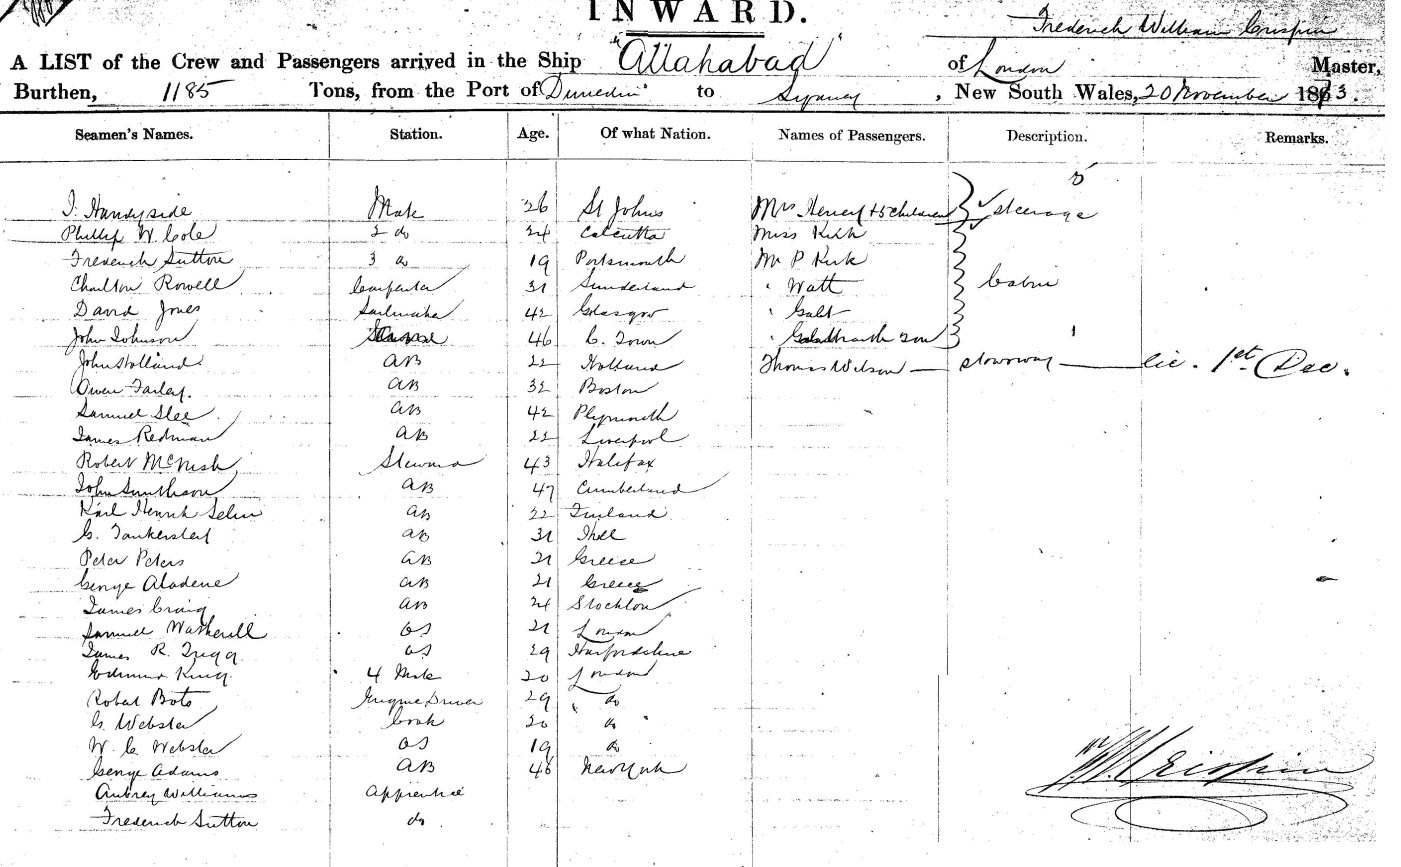 INWARD.
Frederick William Crispin
A LIST of the Crew and Passengers arrived in the Ship "Allahabad" of London Master,
Burthen, 1185 Tons, from the Port of Dunedin to Sydney, New South Wales, 20 November 1873.
Seamen's Names. Station. Age. Of what Nation. Names of Passengers. Description. Remarks.
5
I. Handyside Mate 26 St Johns Mrs Henery + 5 children steerage
Phillip W. Cole 2 do 24 Calcutta Miss Kirk
Frederick Sutton 3 do 19 Portsmouth Mr P Kirk
Charlton Rowell Carpenter 31 Sunderland " Watt Cabin
David Jones Sailmaker 42 Glasgow " Galt
John Johnson 46 C. Town " son 1
John Holland AB 22 Holland Thomas Wilson — stowaway — lic. 1st Dec.
Owen Farley. AB 32 Boston
Samuel Slee AB 42 Plymouth
James Redman AB 22 Liverpool
Robert McNish Steward 43 Halifax
John Smithson AB 47 Cumberland
Karl Henrik Selin AB 22 Finland
G. Tankersley AB 31 Hull
Peter Peters AB 21 Greece
George Aladene AB 21 Greece
James Craig AB 24 Stockton
Samuel Watherill OS 21 London
James R. Trigg OS 29 Harfordshire
Edmund King 4 Mate 20 London
Robert Boto Engine Driver 29 " do
G. Webster Cook 20 do "
W. C. Webster OS 19 do
George Adams AB 46 New York
Aubrey Williams Apprentice
Frederick Sutton do
W. Crispin